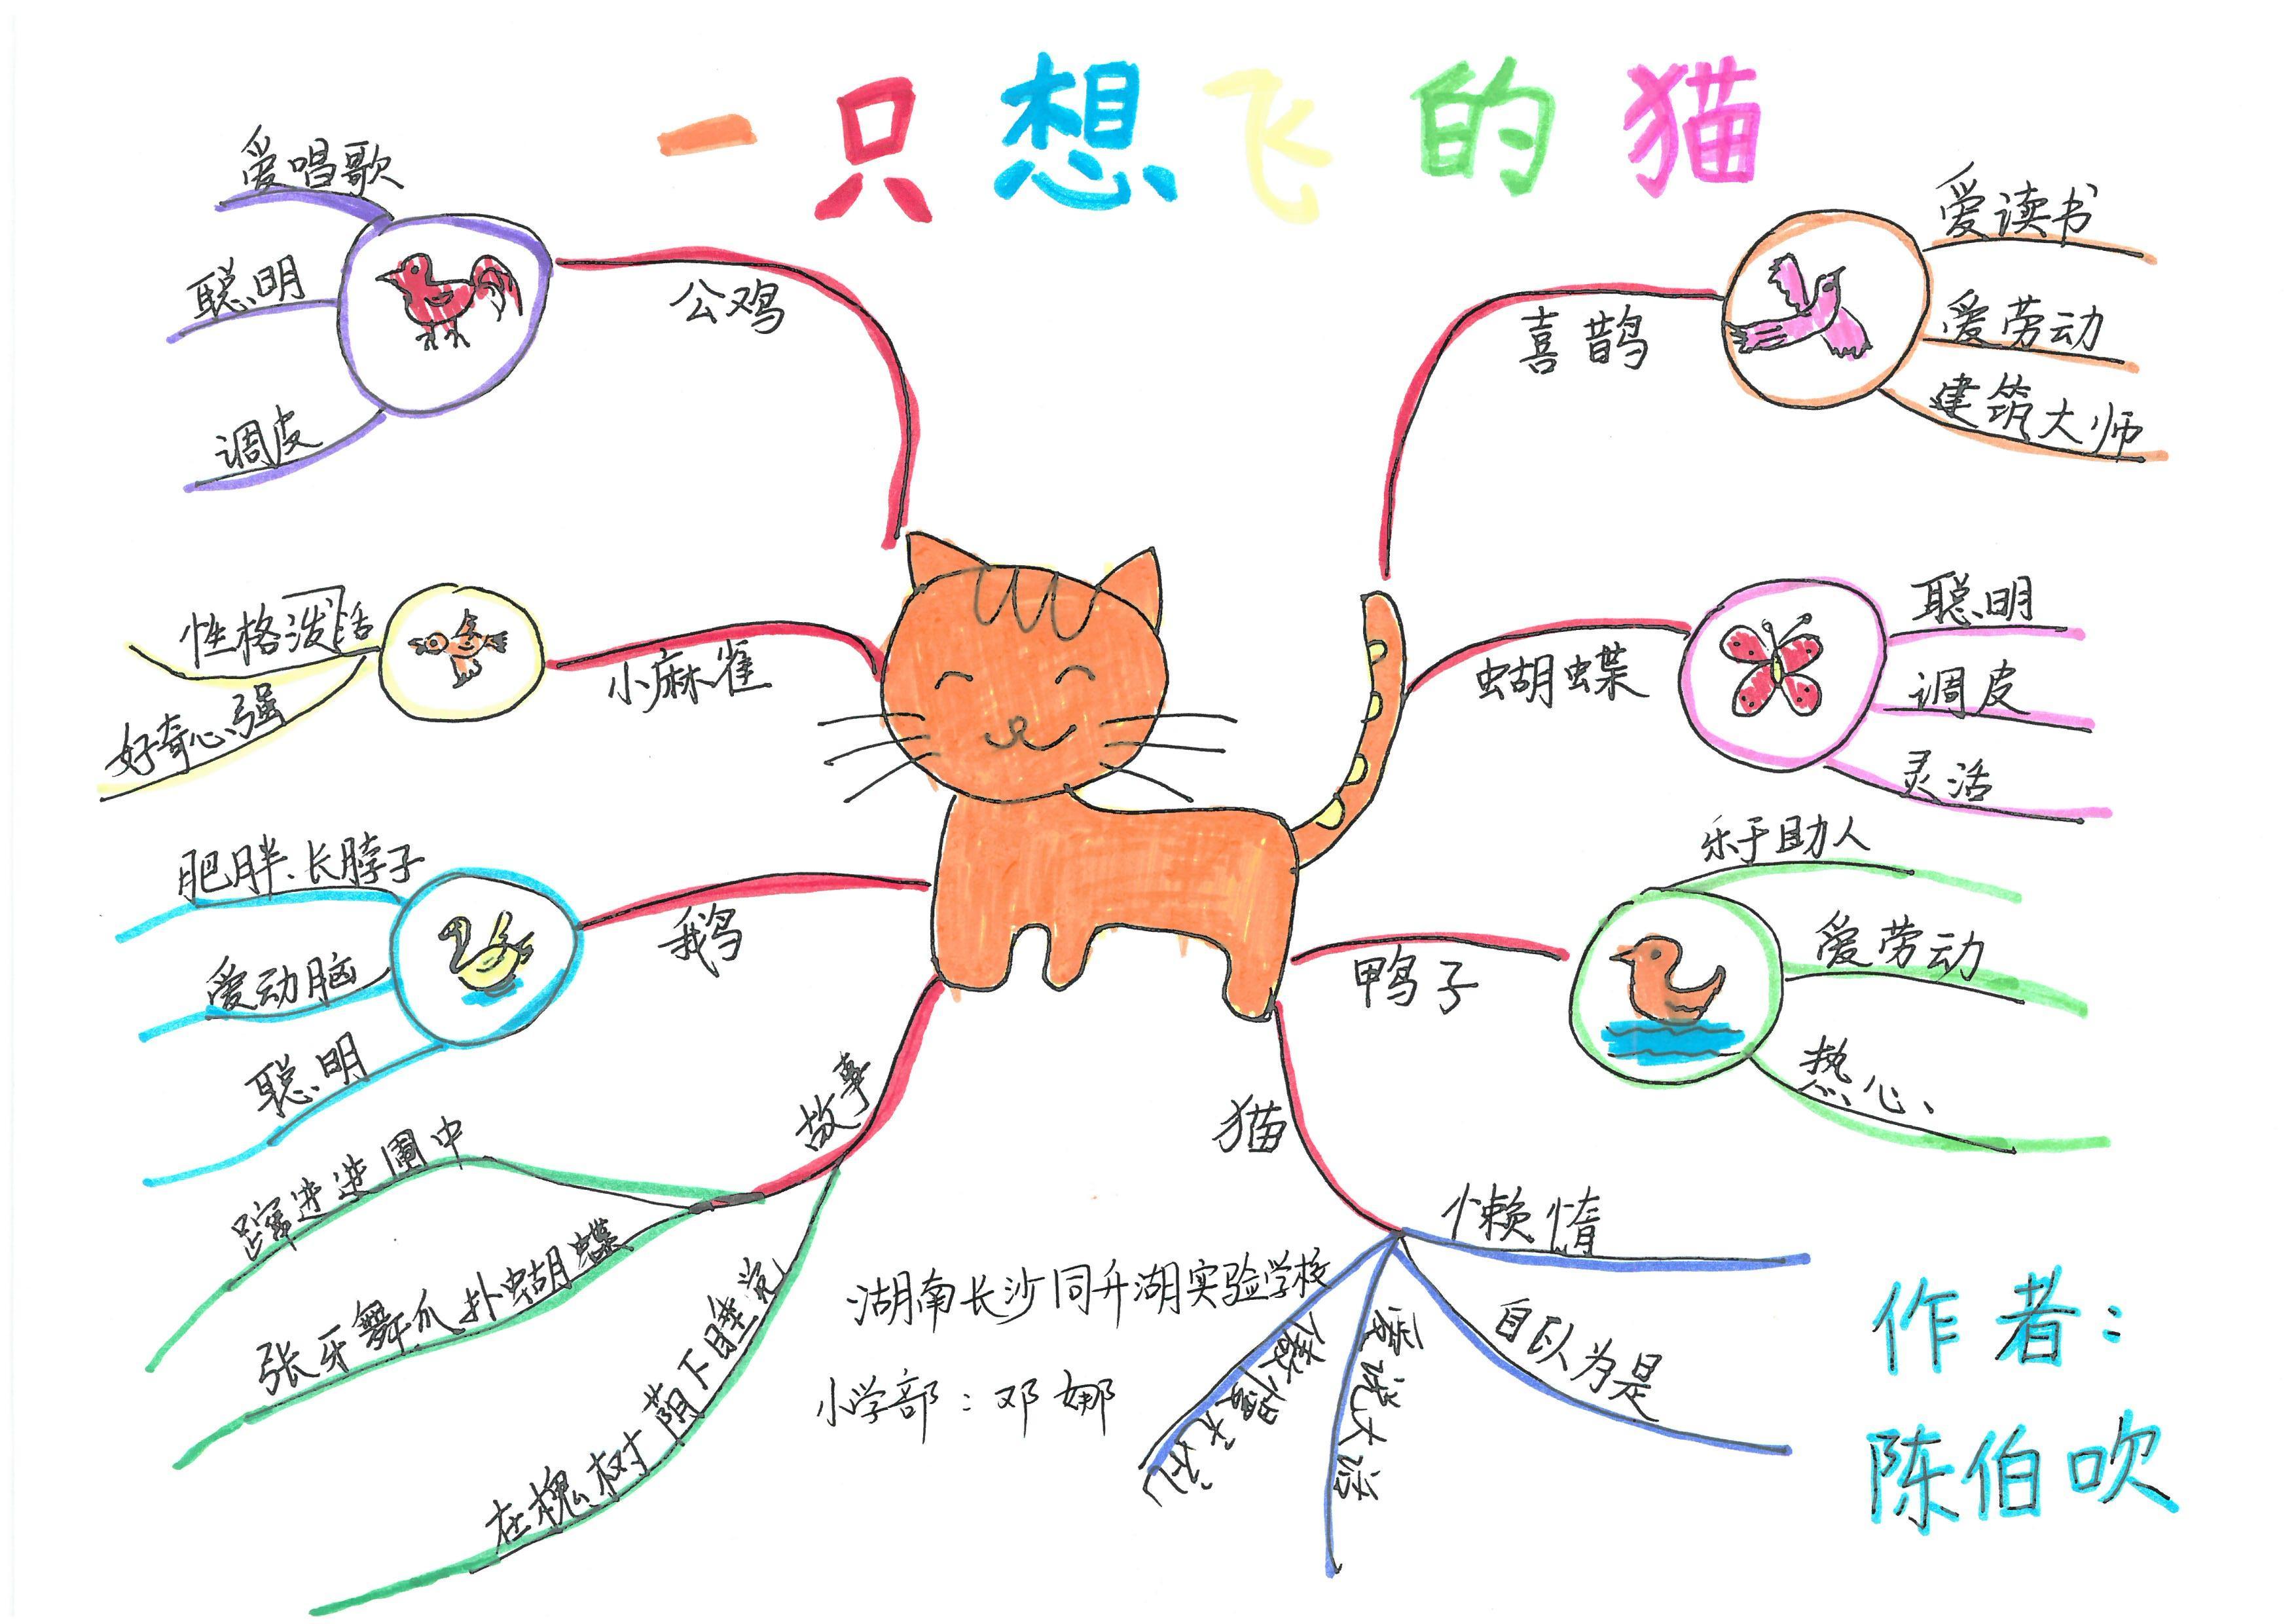 一只想飞的猫
公鸡
爱唱歌
聪明
调皮
小麻雀
性格泼活
好奇心强
鹅
肥胖、长脖子
爱动脑
聪明
故事
蹿进进圃中
张牙舞爪扑蝴蝶
在槐树荫下睡觉
喜鹊
爱读书
爱劳动
建筑大师
蝴蝶
聪明
调皮
灵活
鸭子
乐于助人
爱劳动
热心
猫
懒惰
自以为是
爱说大话
傲慢无礼
湖南长沙同升湖实验学校
小学部：邓娜
作者：
陈伯吹